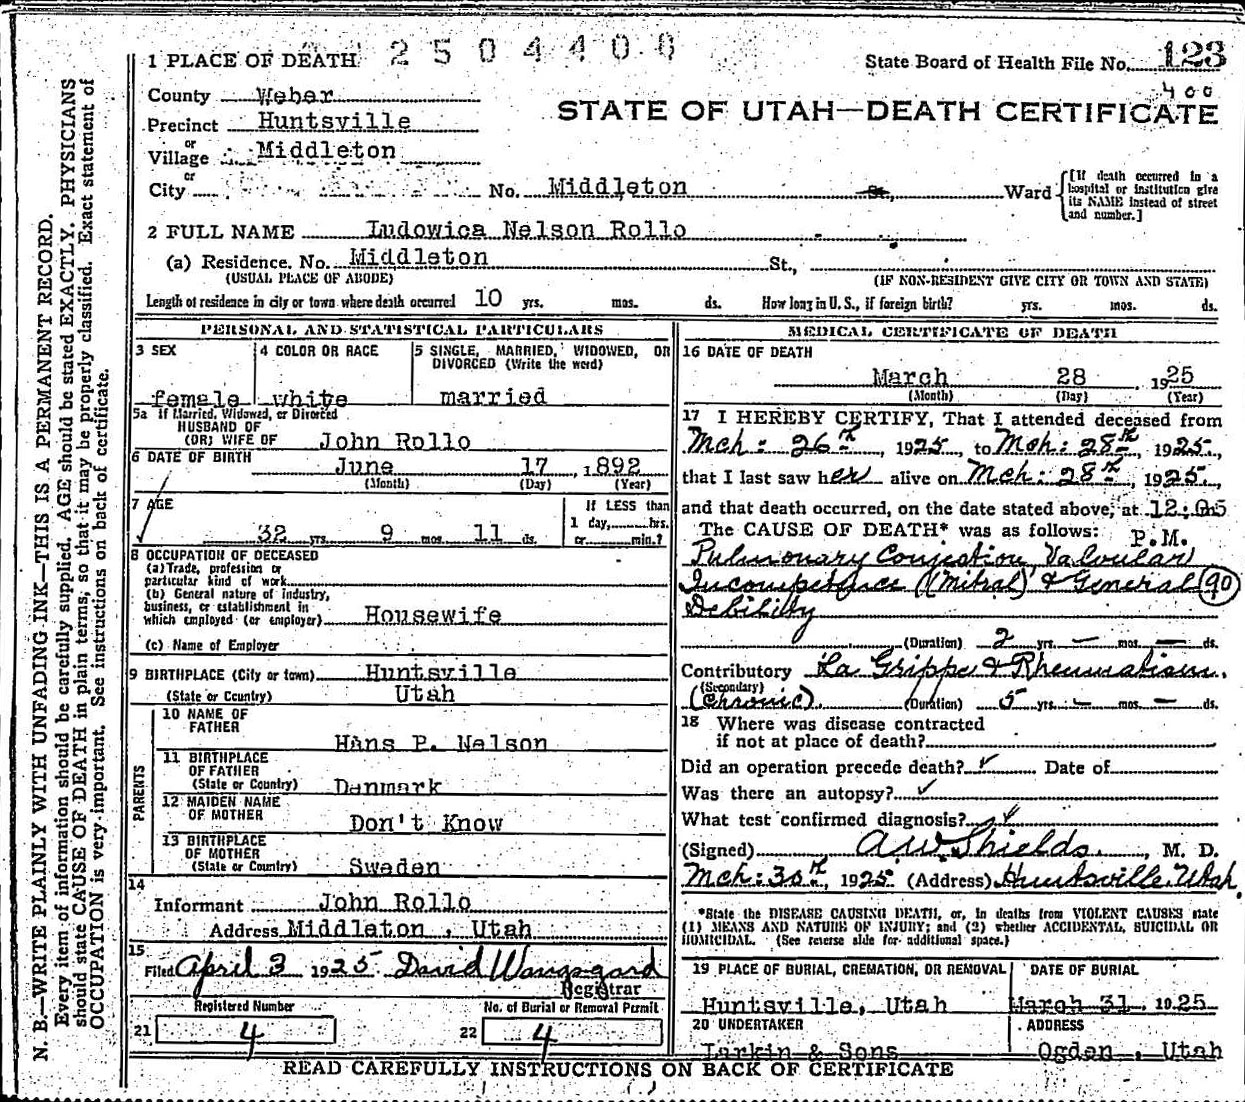 2504400
1 PLACE OF DEATH
State Board of Health File No. 123
400
County Weber
STATE OF UTAH—DEATH CERTIFICATE
Precinct Huntsville
or
Village Middleton
or
City No. Middleton St, Ward [If death occurred in a hospital or institution give its NAME instead of street and number.]
2 FULL NAME Ludowica Nelson Rollo
(a) Residence. No. Middleton St.,
(USUAL PLACE OF ABODE) (IF NON-RESIDENT GIVE CITY OR TOWN AND STATE)
Length of residence in city or town where death occurred 10 yrs. mos. ds. How long in U. S., if foreign birth? yrs. mos. ds.
PERSONAL AND STATISTICAL PARTICULARS
3 SEX
female
4 COLOR OR RACE
white
5 SINGLE, MARRIED, WIDOWED, OR DIVORCED (Write the word)
married
5a If Married, Widowed, or Divorced
HUSBAND OF
(OR) WIFE OF John Rollo
6 DATE OF BIRTH June 17, 1892
(Month) (Day) (Year)
7 AGE
32 yrs. 9 mos. 11 ds.
If LESS than
1 day, hrs.
or min.?
8 OCCUPATION OF DECEASED
(a) Trade, profession or
particular kind of work
(b) General nature of industry,
business, or establishment in
which employed (or employer) Housewife
(c) Name of Employer
9 BIRTHPLACE (City or town) Huntsville
(State or Country) Utah
PARENTS
10 NAME OF
FATHER
Hans P. Nelson
11 BIRTHPLACE
OF FATHER
(State or Country) Danmark
12 MAIDEN NAME
OF MOTHER
Don't Know
13 BIRTHPLACE
OF MOTHER
(State or Country) Sweden
14
Informant John Rollo
Address Middleton, Utah
15
Filed April 3 1925 David Wangsgard
Registrar
Registered Number
21 4
No. of Burial or Removal Permit
22 4
MEDICAL CERTIFICATE OF DEATH
16 DATE OF DEATH
March 28, 1925
(Month) (Day) (Year)
17 I HEREBY CERTIFY, That I attended deceased from
Mch: 26th, 1925, to Mch: 28th, 1925,
that I last saw her alive on Mch: 28th, 1925,
and that death occurred, on the date stated above, at 12:05
The CAUSE OF DEATH* was as follows: P.M.
Pulmonary Congestion, Valvular
Incompetence (Mitral) & General 90
Debility
(Duration) 2 yrs. — mos. — ds.
Contributory La Grippe & Rheumatism.
(Secondary)
(Chronic). (Duration) 5 yrs. — mos. — ds.
18 Where was disease contracted
if not at place of death?
Did an operation precede death? ✓ Date of
Was there an autopsy? ✓
What test confirmed diagnosis? ✓
(Signed) A.W. Shields., M. D.
Mch: 30th, 1925 (Address) Huntsville. Utah.
*State the DISEASE CAUSING DEATH, or, in deaths from VIOLENT CAUSES state
(1) MEANS AND NATURE OF INJURY; and (2) whether ACCIDENTAL, SUICIDAL OR
HOMICIDAL. (See reverse side for additional space.)
19 PLACE OF BURIAL, CREMATION, OR REMOVAL
Huntsville, Utah
DATE OF BURIAL
March 31, 1925
20 UNDERTAKER
Larkin & Sons
ADDRESS
Ogden, Utah
READ CAREFULLY INSTRUCTIONS ON BACK OF CERTIFICATE
N. B.—WRITE PLAINLY WITH UNFADING INK—THIS IS A PERMANENT RECORD.
Every item of information should be carefully supplied. AGE should be stated EXACTLY. PHYSICIANS
should state CAUSE OF DEATH in plain terms, so that it may be properly classified. Exact statement of
OCCUPATION is very important. See instructions on back of certificate.